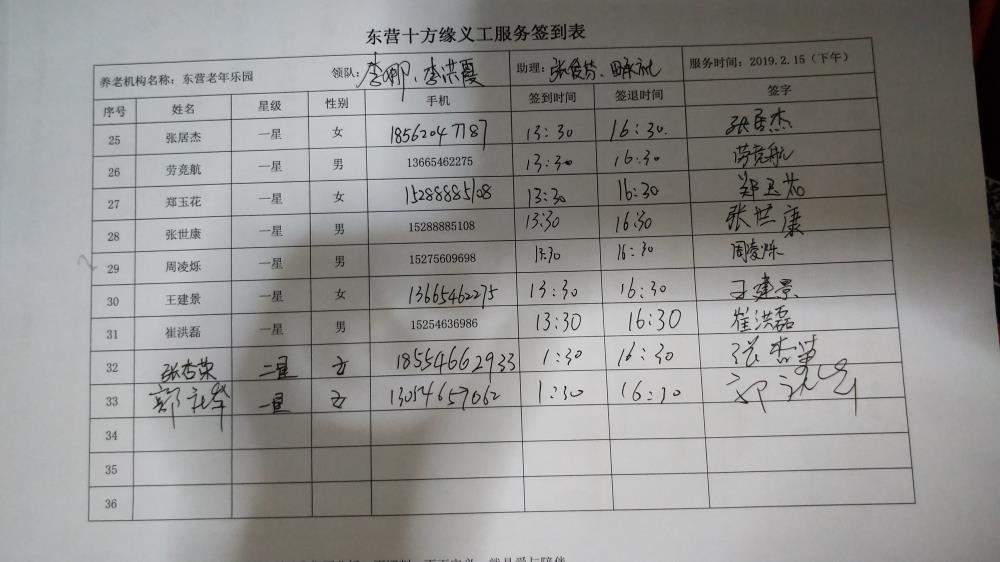 东营十方缘义工服务签到表
养老机构名称：东营老年乐园 领队：李娜、李洪霞 助理：张俊芬、田永礼 服务时间：2019.2.15（下午）
序号 姓名 星级 性别 手机 签到时间 签退时间 签字
25 张居杰 一星 女 18562047187 13:30 16:30. 张居杰
26 劳竞航 一星 男 13665462275 13:30 16:30 劳竞航
27 郑玉花 一星 女 15288885108 13:30 16:30 郑玉花
28 张世康 一星 男 15288885108 13:30 16:30 张世康
29 周凌烁 一星 男 15275609698 13:30 16:30 周凌烁
30 王建景 一星 女 13665462275 13:30 16:30 王建景
31 崔洪磊 一星 男 15254636986 13:30 16:30 崔洪磊
32 张杏荣 二星 女 18554662933 1:30 16:30 张杏荣
33 郭 一星 女 13054657062 1:30 16:30 郭
34
35
36